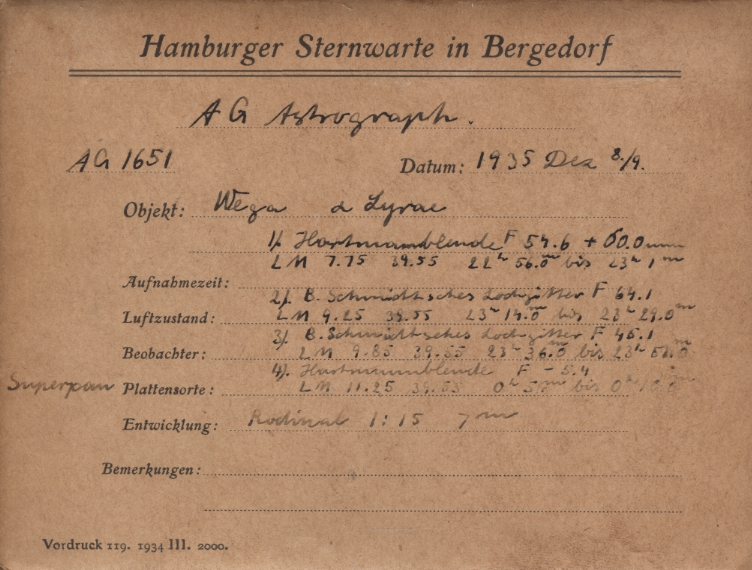 Hamburger Sternwarte in Bergedorf
AG Astrograph.
AG 1651 Datum: 1935 Dez 8./9.
Objekt: Wega α Lyrae
1). Hartmannblende F 54.6 + 60.0mm
LM 7.75 39.55 22h 56.0m bis 23h 1m
Aufnahmezeit:
2). B. Schmidt'sches Lochgitter F 64.1
Luftzustand: LM 9.25 39.55 23h 14.0m bis 23h 29.0m
3) B. Schmidt'sches Lochgitter F 45.1
Beobachter: LM 9.85 39.55 23h 36.0m bis 23h m
4). Hartmannblende F - 5.4
Superpan Plattensorte: LM 11.25 39.55 0h 5m bis 0h 10m
Entwicklung: Rodinal 1:15 7m
Bemerkungen:
Vordruck 119. 1934 III. 2000.